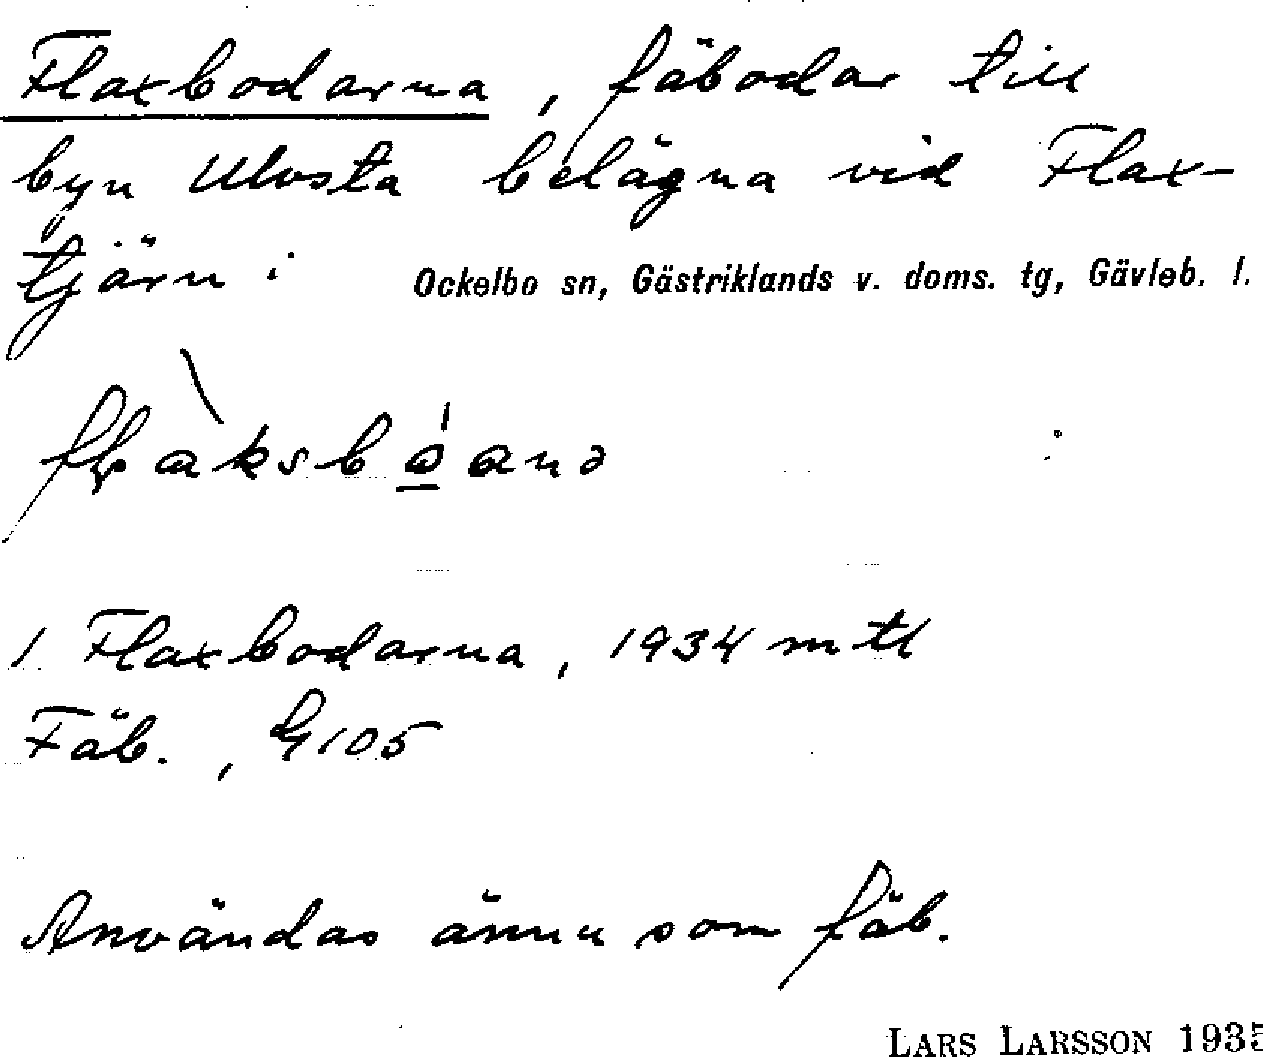 Flaxbodarna, fäbodar till
byn Ulvsta belägna vid Flax-
tjärn i Ockelbo sn, Gästriklands v. doms. tg, Gävleb. l.
1. Flaxbodarna, 1934 mtl
Fäb., G105
Användas ännu som fäb.
LARS LARSSON 1935